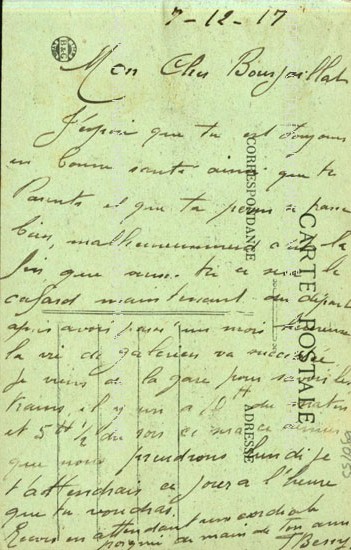 7-12-17
Mon Cher Bourjaillat
J'espoir que tu est toujours
en bonne santé ainsi que te
Parents et que ta perm se passe
bien, malheureusement c'est la
fin que nous
cafard maintenant du départ
après avoir passé un mois heureux
la vie de galérien va succédée
je viens de la gare pour savoir les
trains, il y un a 10H du matin
et 5H 1/2 du soir ce
que nous prendrons lundi je
t'attendrais ce jour a l'heure
que tu voudras.
Reçois en attendant une cordiale
poignée de main de ton ami
CORRESPONDANCE
CARTE POSTALE
ADRESSE
B&G